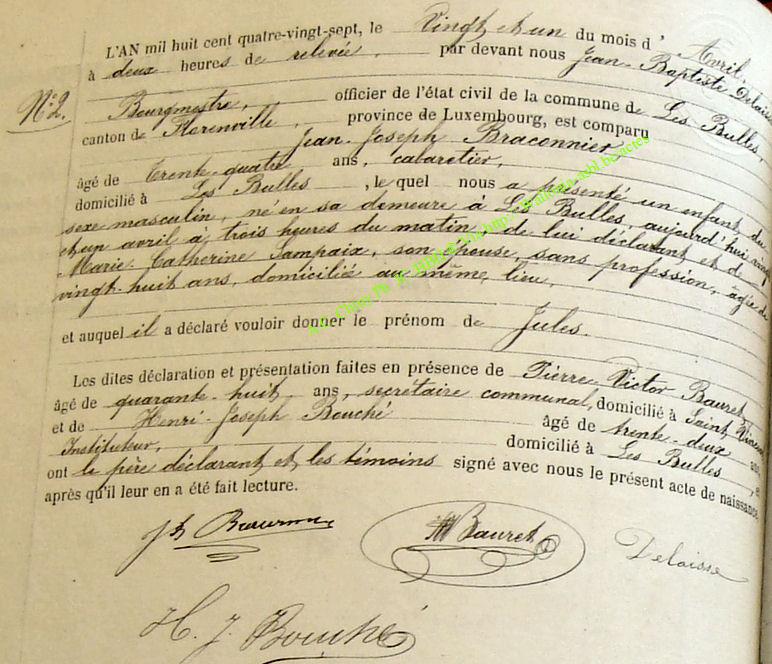 L'AN mil huit cent quatre-vingt-sept, le Vingt et un du mois d' Avril,
à deux heures de relevée, par devant nous Jean-Baptiste Delaisse
N° 2.
Bourgmestre, officier de l'état civil de la commune de Les Bulles,
canton de Florenville, province de Luxembourg, est comparu
Jean-Joseph Braconnier
âgé de Trente-quatre ans, cabaretier,
domicilié à Les Bulles, le quel nous a présenté un enfant du
sexe masculin, né en sa demeure à Les Bulles, aujourd'hui vingt
et un avril à trois heures du matin, de lui déclarant et de
Marie-Catherine Sampaix, son épouse, sans profession, âgée de
vingt-huit ans, domiciliée au même lieu,
et auquel il a déclaré vouloir donner le prénom de Jules.
Les dites déclaration et présentation faites en présence de Pierre-Victor Bauret
âgé de quarante-huit ans, secrétaire communal, domicilié à Saint Vincent
et de Henri-Joseph Bouché âgé de trente-deux ans,
Instituteur, domicilié à Les Bulles,
ont le père déclarant et les témoins signé avec nous le présent acte de naissance
après qu'il leur en a été fait lecture.
Bauret
Delaisse
H. J. Bouché